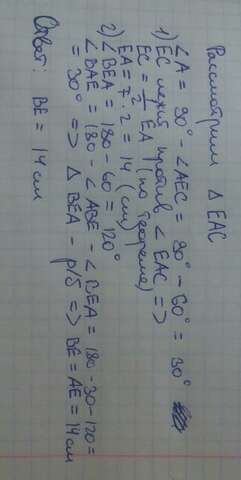 Рассмотрим △ EAC
∠A = 90° - ∠AEC = 90° - 60° = 30°
1) EC лежит против ∠ EAC =>
EC = 1/2 EA (по теореме) =>
EA = 7 · 2 = 14 (см)
2) ∠BEA = 180 - 60 = 120°
∠BAE = 180 - ∠ABE - ∠BEA = 180 - 30 - 120 =
= 30° => △ BEA - р/б => BE = AE = 14 см
Ответ: BE = 14 см